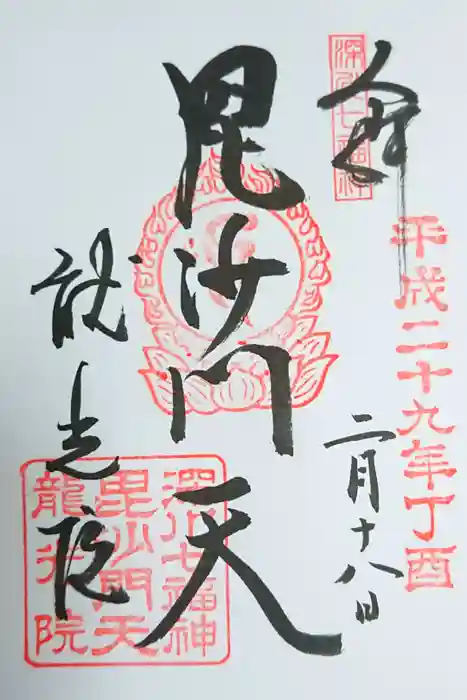 深川七福神
奉拝
平成二十九年丁酉
二月十八日
毘沙門天
龍光院
深川七福神
毘沙門天
龍光院